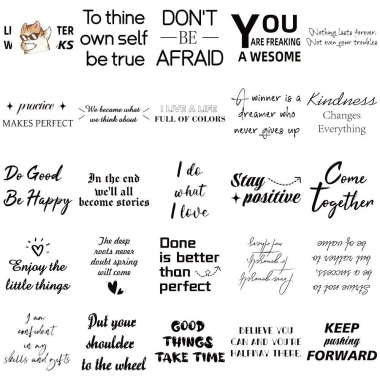 LI TER
W KS
To thine
own self
be true
DON'T
BE
AFRAID
YOU
ARE FREAKING
A WESOME
Nothing lasts forever.
Not even your troubles
practice
MAKES PERFECT
We became what
we think about
I LIVE A LIFE
FULL OF COLORS
A winner is a
dreamer who
never gives up
Kindness
Changes
Everything
Do Good
Be Happy
In the end
we'll all
become stories
I do
what
I love
Stay
positive
Come
Together
Enjoy the
little things
The deep
roots never
doubt spring
will come
Done
is better
than
perfect
Strive not to
be a success
but rather to
be of value
I am
confident
in my
skills and gifts
Put your
shoulder
to the wheel
GOOD
THINGS
TAKE TIME
BELIEVE YOU
CAN AND YOU'RE
HALFWAY THERE.
KEEP
pushing
FORWARD